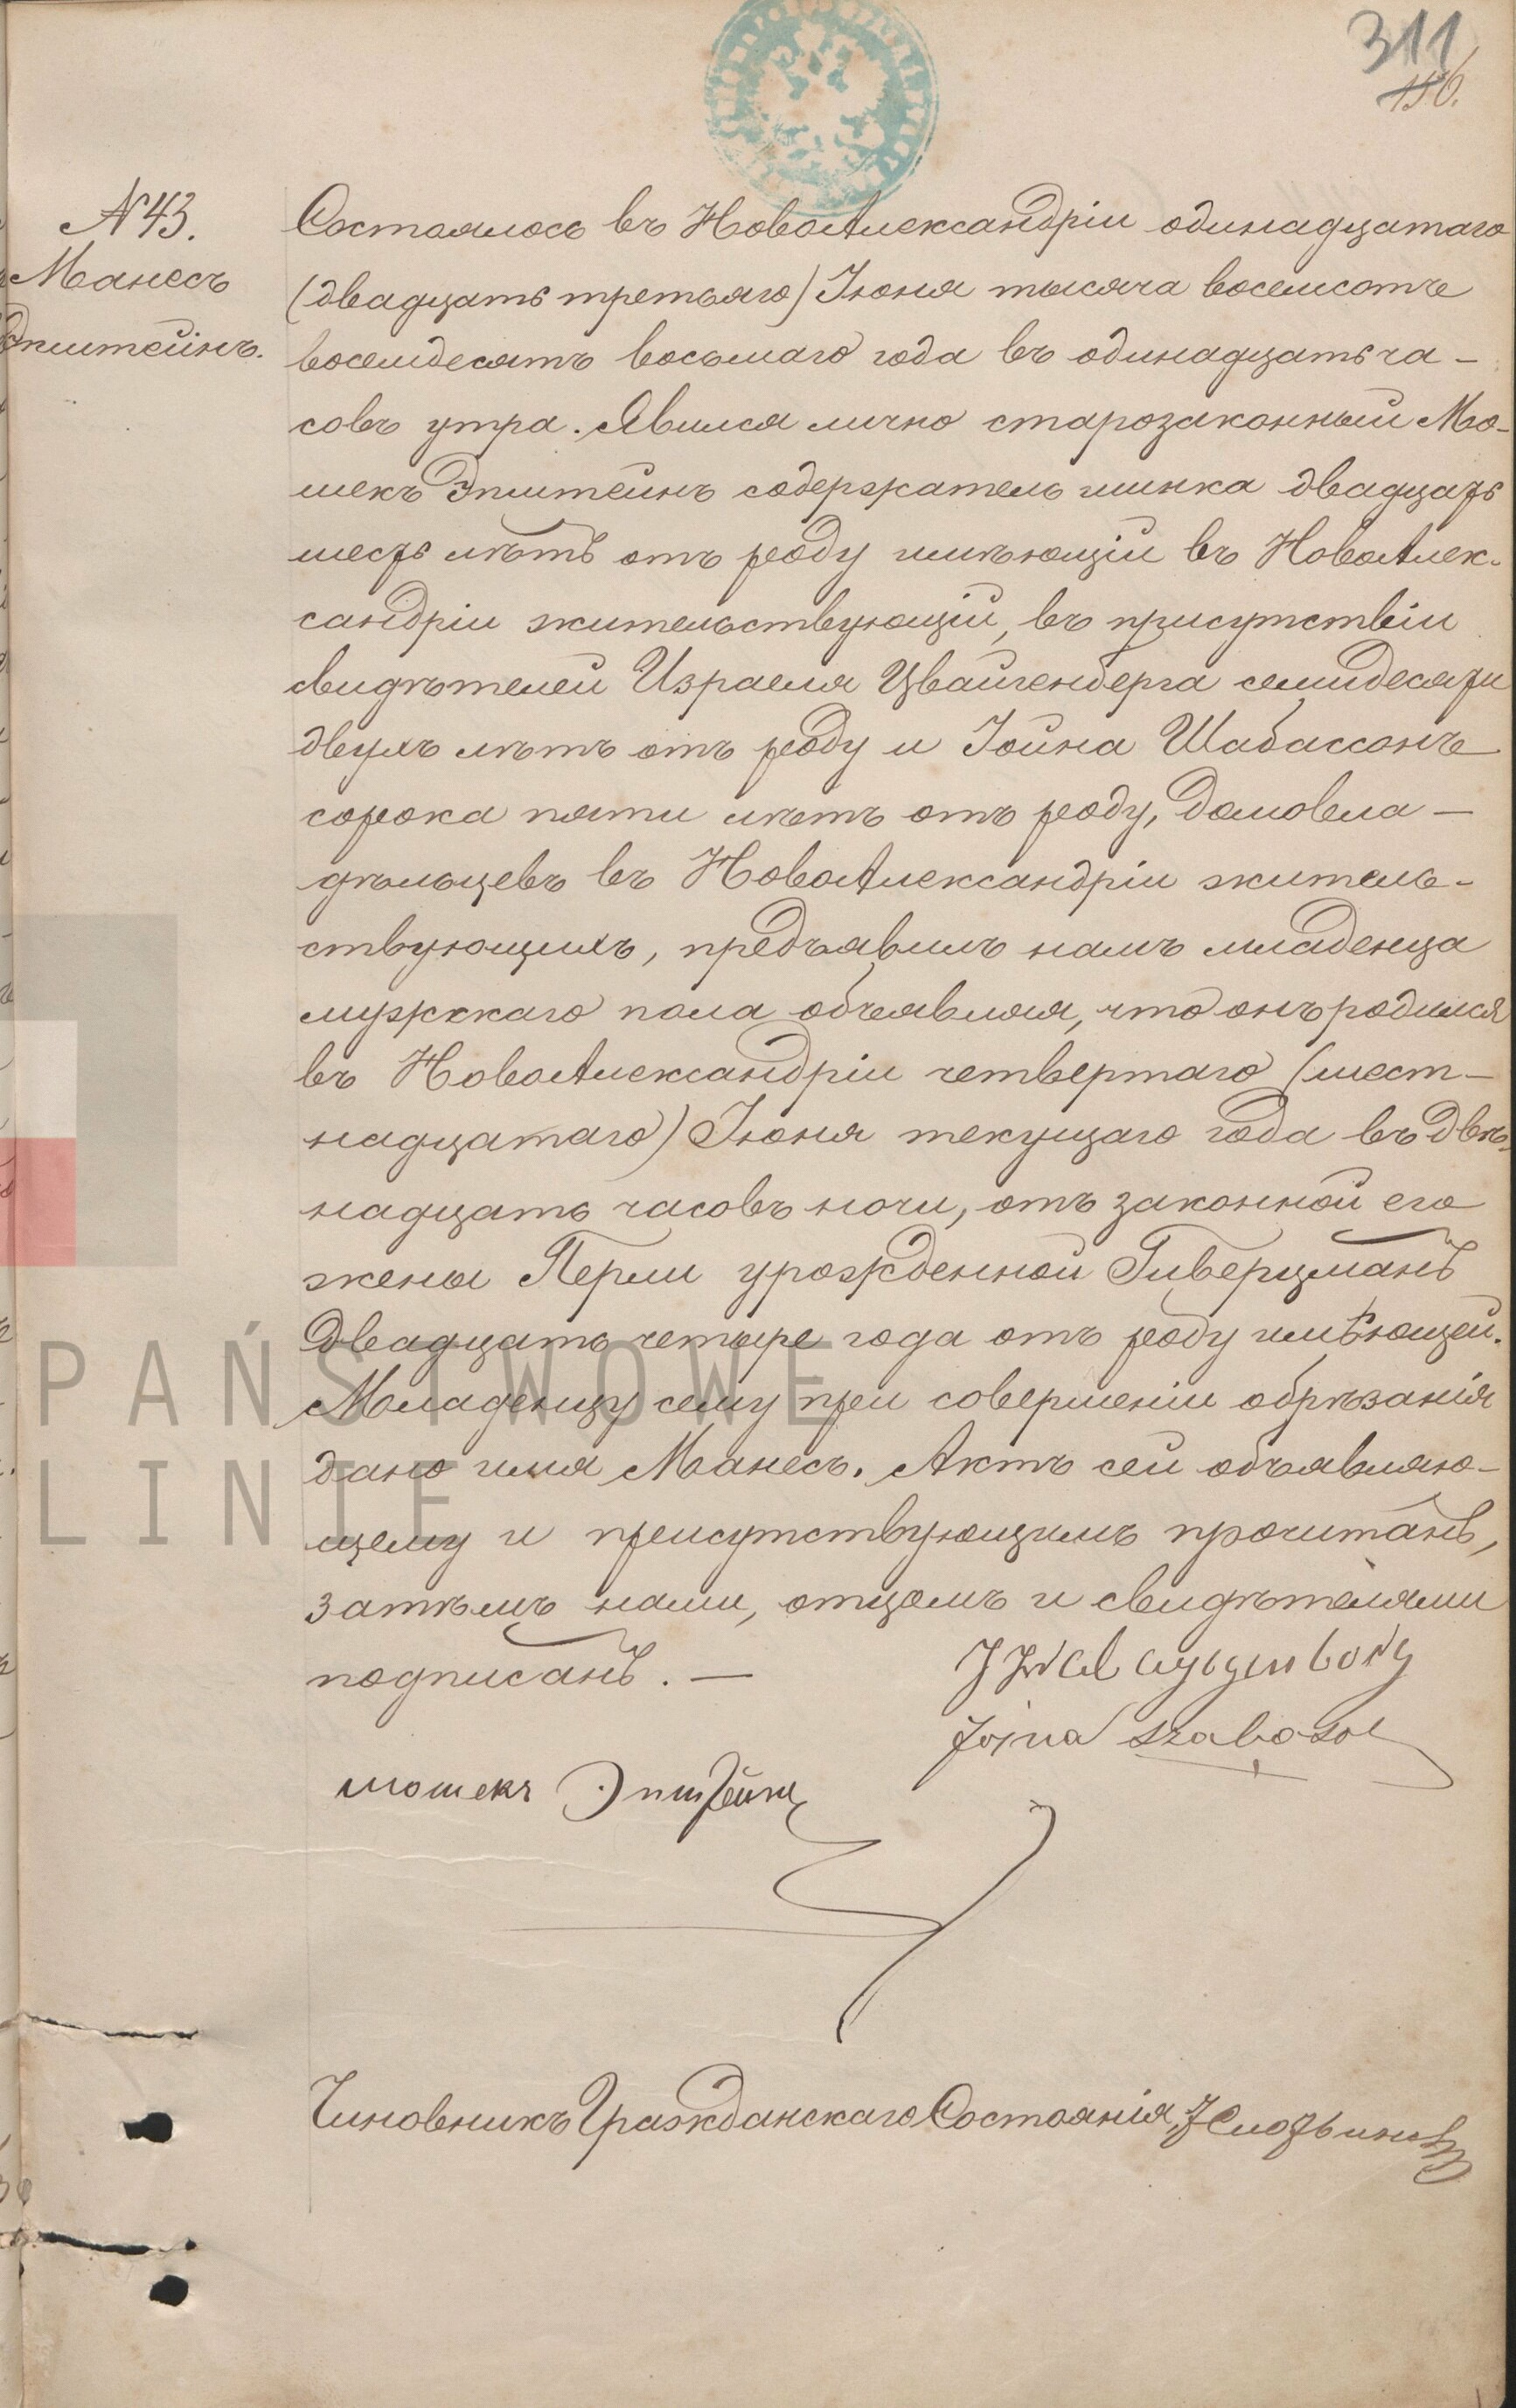 311
156.
N 43.
Манесъ
Эпштейнъ.
Состоялось въ НовоАлександріи одинадцатаго
(двадцать третьяго) Іюня тысяча восемсотъ
восемдесятъ восьмаго года въ одинадцать ча-
совъ утра. Явился лично старозаконный Мо-
шекъ Эпштейнъ содержатель шинка двадцать
шесть лѣтъ отъ роду имѣющій въ НовоАлек-
сандріи жительствующій, въ присутствіи
свидѣтелей Израеля Цвайгенберга семидесяти
двухъ лѣтъ отъ роду и Іойна Шабассонъ
сорока пяти лѣтъ отъ роду, домовла-
дѣльцевъ въ НовоАлександріи житель-
ствующихъ, предъявилъ намъ младенца
мужскаго пола объявляя, что онъ родился
въ НовоАлександріи четвертаго (шест-
надцатаго) Іюня текущаго года въ двѣ-
надцать часовъ ночи, отъ законной его
жены Перли урожденной Гиверцманъ
двадцать четыре года отъ роду имѣющей.
Младенцу сему при совершеніи обрѣзанія
дано имя Манесъ. Актъ сей объявляю-
щему и присутствующимъ прочитанъ,
затѣмъ нами, отцомъ и свидѣтелями
подписанъ. —
Joina Szabasol
мошекъ Эпштейнъ
Чиновникъ Гражданскаго Состоянія
PAŃSTWOWE
LINIE